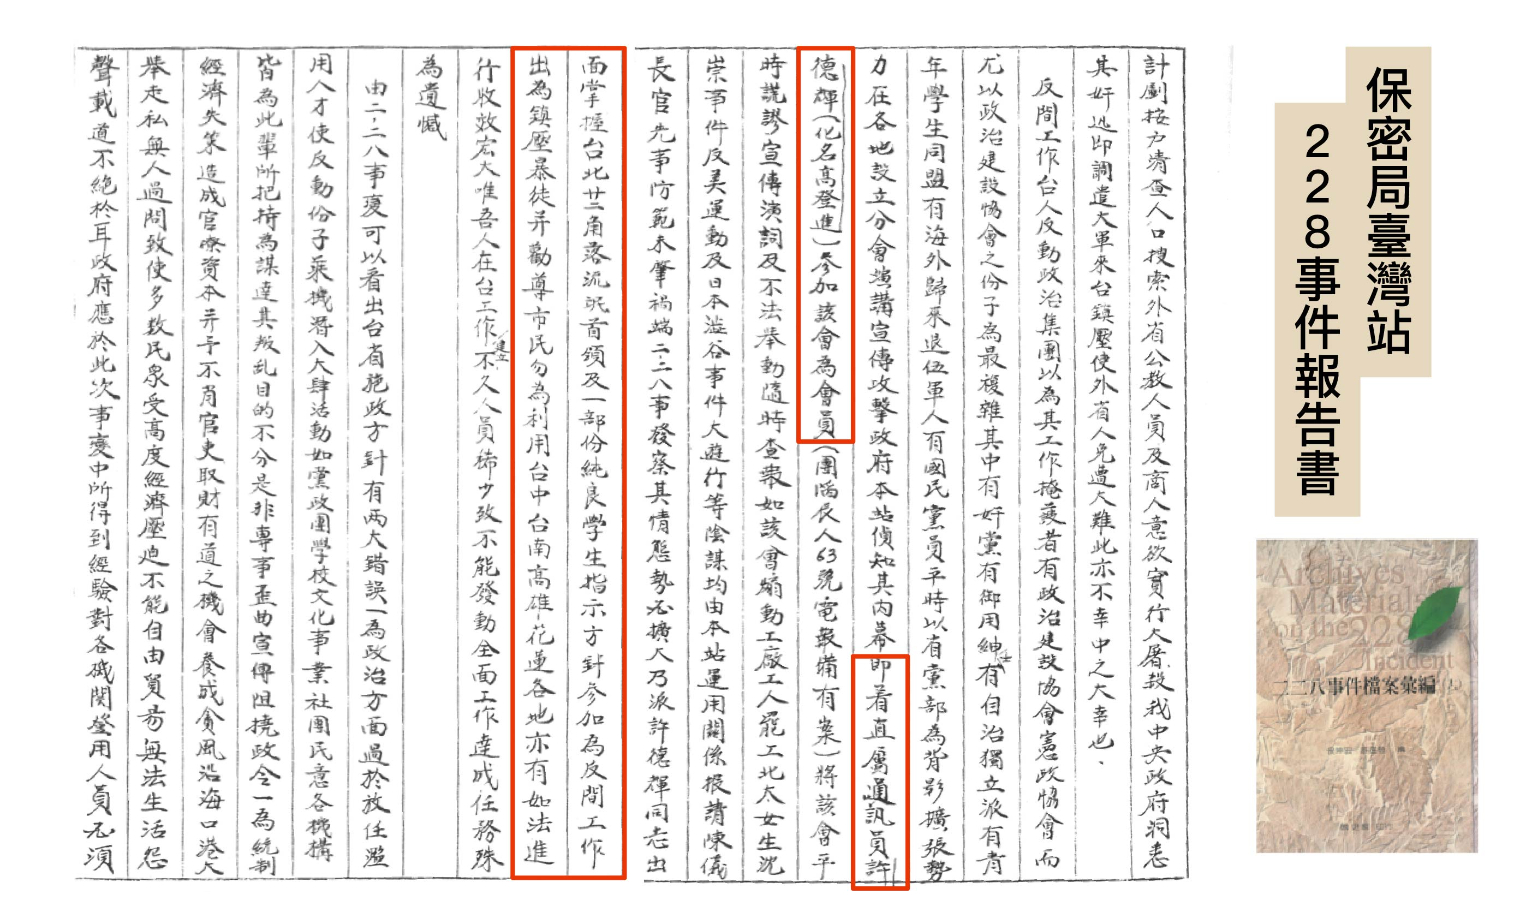 保密局臺灣站
228事件報告書
計劃按戶清查人口搜索外省公教人員及商人意欲實行大屠殺我中央政府洞悉
其奸迅即調遣大軍來台鎮壓使外省人免遭大難此亦不幸中之大幸也、
反間工作台人反動政治集團以為其工作掩護者有政治建設協會憲政協會而
尤以政治建設協會之份子為最複雜其中有奸黨有御用紳士有自治獨立派有青
年學生同盟有海外歸來退伍軍人有國民黨員平時以省黨部為背影擴張勢
力在各地設立分會演講宣傳攻擊政府本站偵知其內幕即着直屬通訊員許
德輝(化名高登進)參加該會為會員(團隔辰人63號電報備有案)將該會平
時謊謬宣傳演詞及不法舉動隨時查報如該會煽動工廠工人罷工北大女生沈
崇事件反美運動及日本澁谷事件大遊行等陰謀均由本站運用關係報請陳儀
長官先事防範未肇禍端二、二八事發察其情態勢必擴大乃派許德輝同志出
面掌握台北廿二角落流氓首領及一部份純良學生指示方針參加為反間工作
出為鎮壓暴徒并勸導市民勿為利用台中台南高雄花蓮各地亦有如法進
行收效宏大唯吾人在台工作建立不久人員稀少致不能發動全面工作達成任務殊
為遺憾
由二、二八事變可以看出台省施政方針有兩大錯誤一為政治方面過於放任濫
用人才使反動份子乘機潛入大肆活動如黨政團學校文化事業社團民意各機構
皆為此輩所把持為謀達其叛乱目的不分是非專事歪曲宣傳阻撓政令一為統制
經濟失策造成官僚資本予不肖官吏取財有道之機會養成貪風沿海口港大
舉走私無人過問致使多数民眾受高度經濟壓迫不能自由貿易無法生活怨
聲載道不絕於耳政府應於此次事變中所得到經驗對各機關登用人員必須
Archives
Materials
on the 228
Incident
二二八事件檔案彙編